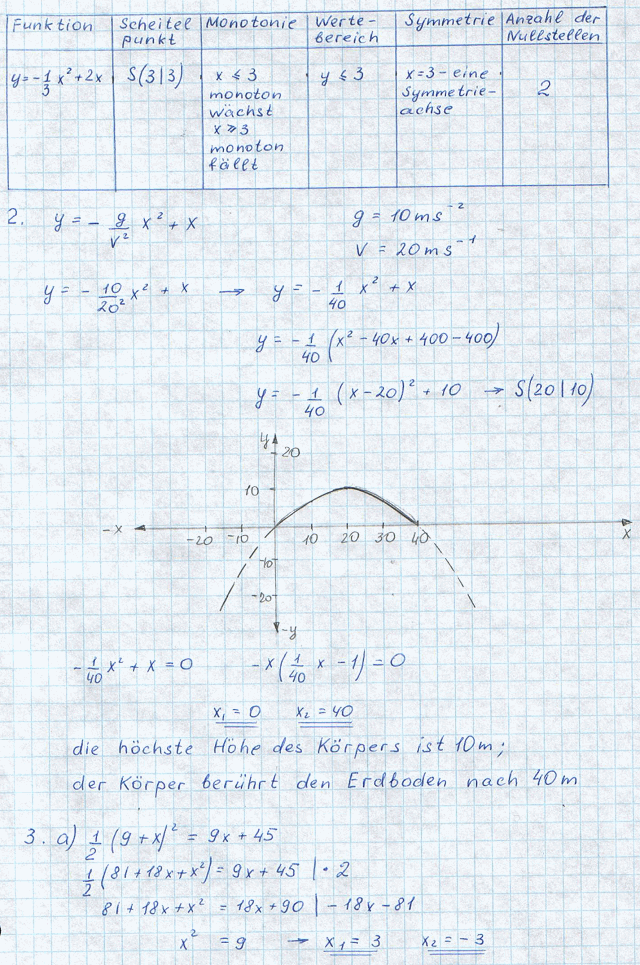 Funktion | Scheitel punkt | Monotonie | Werte-bereich | Symmetrie | Anzahl der Nullstellen
y=-1/3 x²+2x | S(3|3) | x ⩽ 3 monoton wächst x ⩾ 3 monoton fällt | y ⩽ 3 | x=3-eine Symmetrie-achse | 2
2. y = - g/v² x² + x    g = 10 m s⁻²
v = 20 m s⁻¹
y = - 10/20² x² + x → y = - 1/40 x² + x
y = - 1/40 (x² - 40x + 400 - 400)
y = - 1/40 (x-20)² + 10 → S(20|10)
y
20
10
-x -20 -10 10 20 30 40 x
-10
-20
-y
- 1/40 x² + x = 0    -x(1/40 x - 1) = 0
x₁ = 0    x₂ = 40
die höchste Höhe des Körpers ist 10m;
der Körper berührt den Erdboden nach 40m
3. a) 1/2 (9+x)² = 9x + 45
1/2 (81+18x+x²) = 9x + 45 | · 2
81+18x+x² = 18x+90 | -18x-81
x² = 9 → x₁ = 3    x₂ = -3